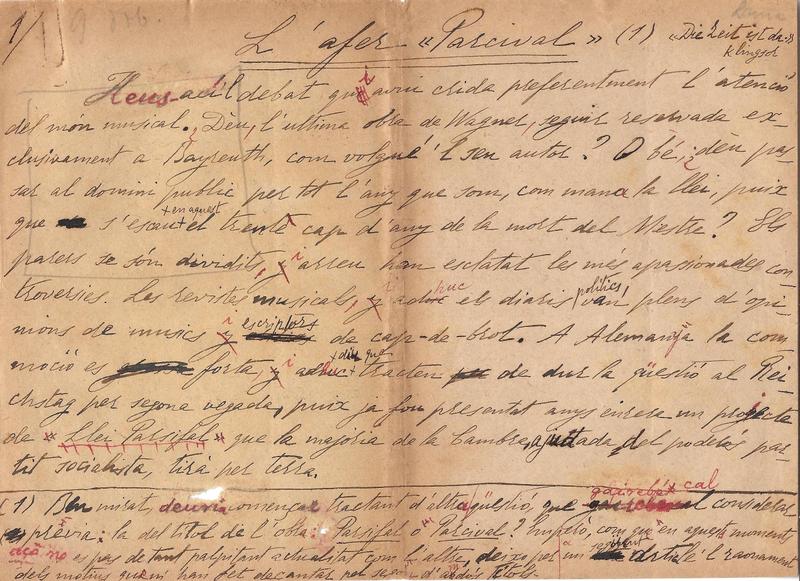 1/
L'afer «Parcival» (1) «Die Zeit ist da.»
Klingsor
Heus-aci'l debat que i aviu crida preferentment l'atenció
del món musical. Dèu, l'ultima obra de Wagner, seguir reservada ex-
clusivament a Bayreuth, com volgué'l seu autor? O bé, dèu pas-
sar al domini públic per tot l'any que som, com mana la llei, puix
que s'escau + en aquest + el trentè cap d'any de la mort del Mestre? Els
parers se són dividits, i arreu han esclatat les més apasionades con-
troversies. Les revistes musicals, i adhuc el diaris polítics, van plens d'opi-
nions de musics i escriptors de cap-de-brot. A Alemania la com-
moció es forta, i adhuc + diu que + tracten de dur la qüestió al Rei-
chstag per segona vegada, puix ja fou presentat anys enrere un projecte
de «Llei Parsifal» que la majoria de la Cambra, ajudada del poderós par-
tit socialista, tirà per terra.
(1) Ben mirat, deuria començar tractant d'altra qüestió, que gairebé cal considerar
prévia: la del titol de l'obra: Parsifal o Parcival? Empró, com que en aquest moment
això no es pas de tant palpitant actualitat com l'altre, deixo per un article'l raonament
dels motius que m han fet decantar pel segón d'abdós titols.